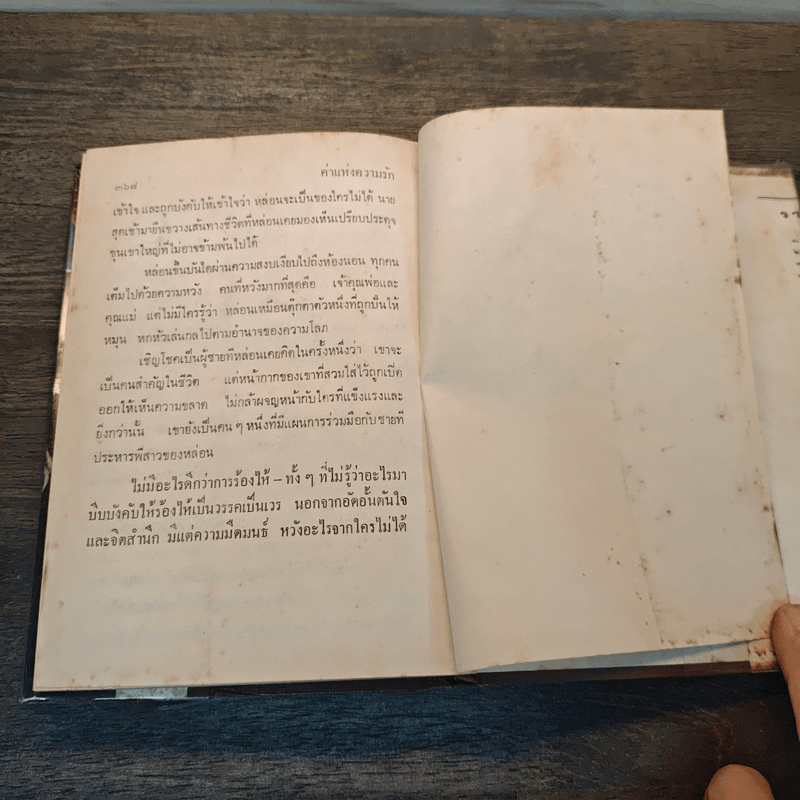 ๓๖๘ ค่าแห่งความรัก
เข้าใจ และถูกบังคับให้เข้าใจว่า หล่อนจะเป็นของใครไม่ได้ นาย
สุดเข้ามายืนขวางเส้นทางชีวิตที่หล่อนเคยมองเห็นเปรียบประดุจ
ขุนเขาใหญ่ที่ไม่อาจข้ามพ้นไปได้
หล่อนขึ้นบันไดผ่านความสงบเงียบไปถึงห้องนอน ทุกคน
เต็มไปด้วยความหวัง คนที่หวังมากที่สุดคือ เจ้าคุณพ่อและ
คุณแม่ แต่ไม่มีใครรู้ว่า หล่อนเหมือนตุ๊กตาตัวหนึ่งที่ถูกปั้นให้
หมุน หกหัวเล่นกลไปตามอำนาจของความโลภ
เชิญโชคเป็นผู้ชายที่หล่อนเคยคิดในครั้งหนึ่งว่า เขาจะ
เป็นคนสำคัญในชีวิต แต่หน้ากากของเขาที่สวมใส่ไว้ถูกเปิด
ออกให้เห็นความขลาด ไม่กล้าผจญหน้ากับใครที่แข็งแรงและ
ยิ่งกว่านั้น เขายังเป็นคน ๆ หนึ่งที่มีแผนการร่วมมือกับชายที่
ประหารพี่สาวของหล่อน
ไม่มีอะไรดีกว่าการร้องไห้ – ทั้ง ๆ ที่ไม่รู้ว่าอะไรมา
บีบบังคับให้ร้องไห้เป็นวรรคเป็นเวร นอกจากอัดอั้นตันใจ
และจิตสำนึก มีแต่ความมืดมนธ์ หวังอะไรจากใครไม่ได้